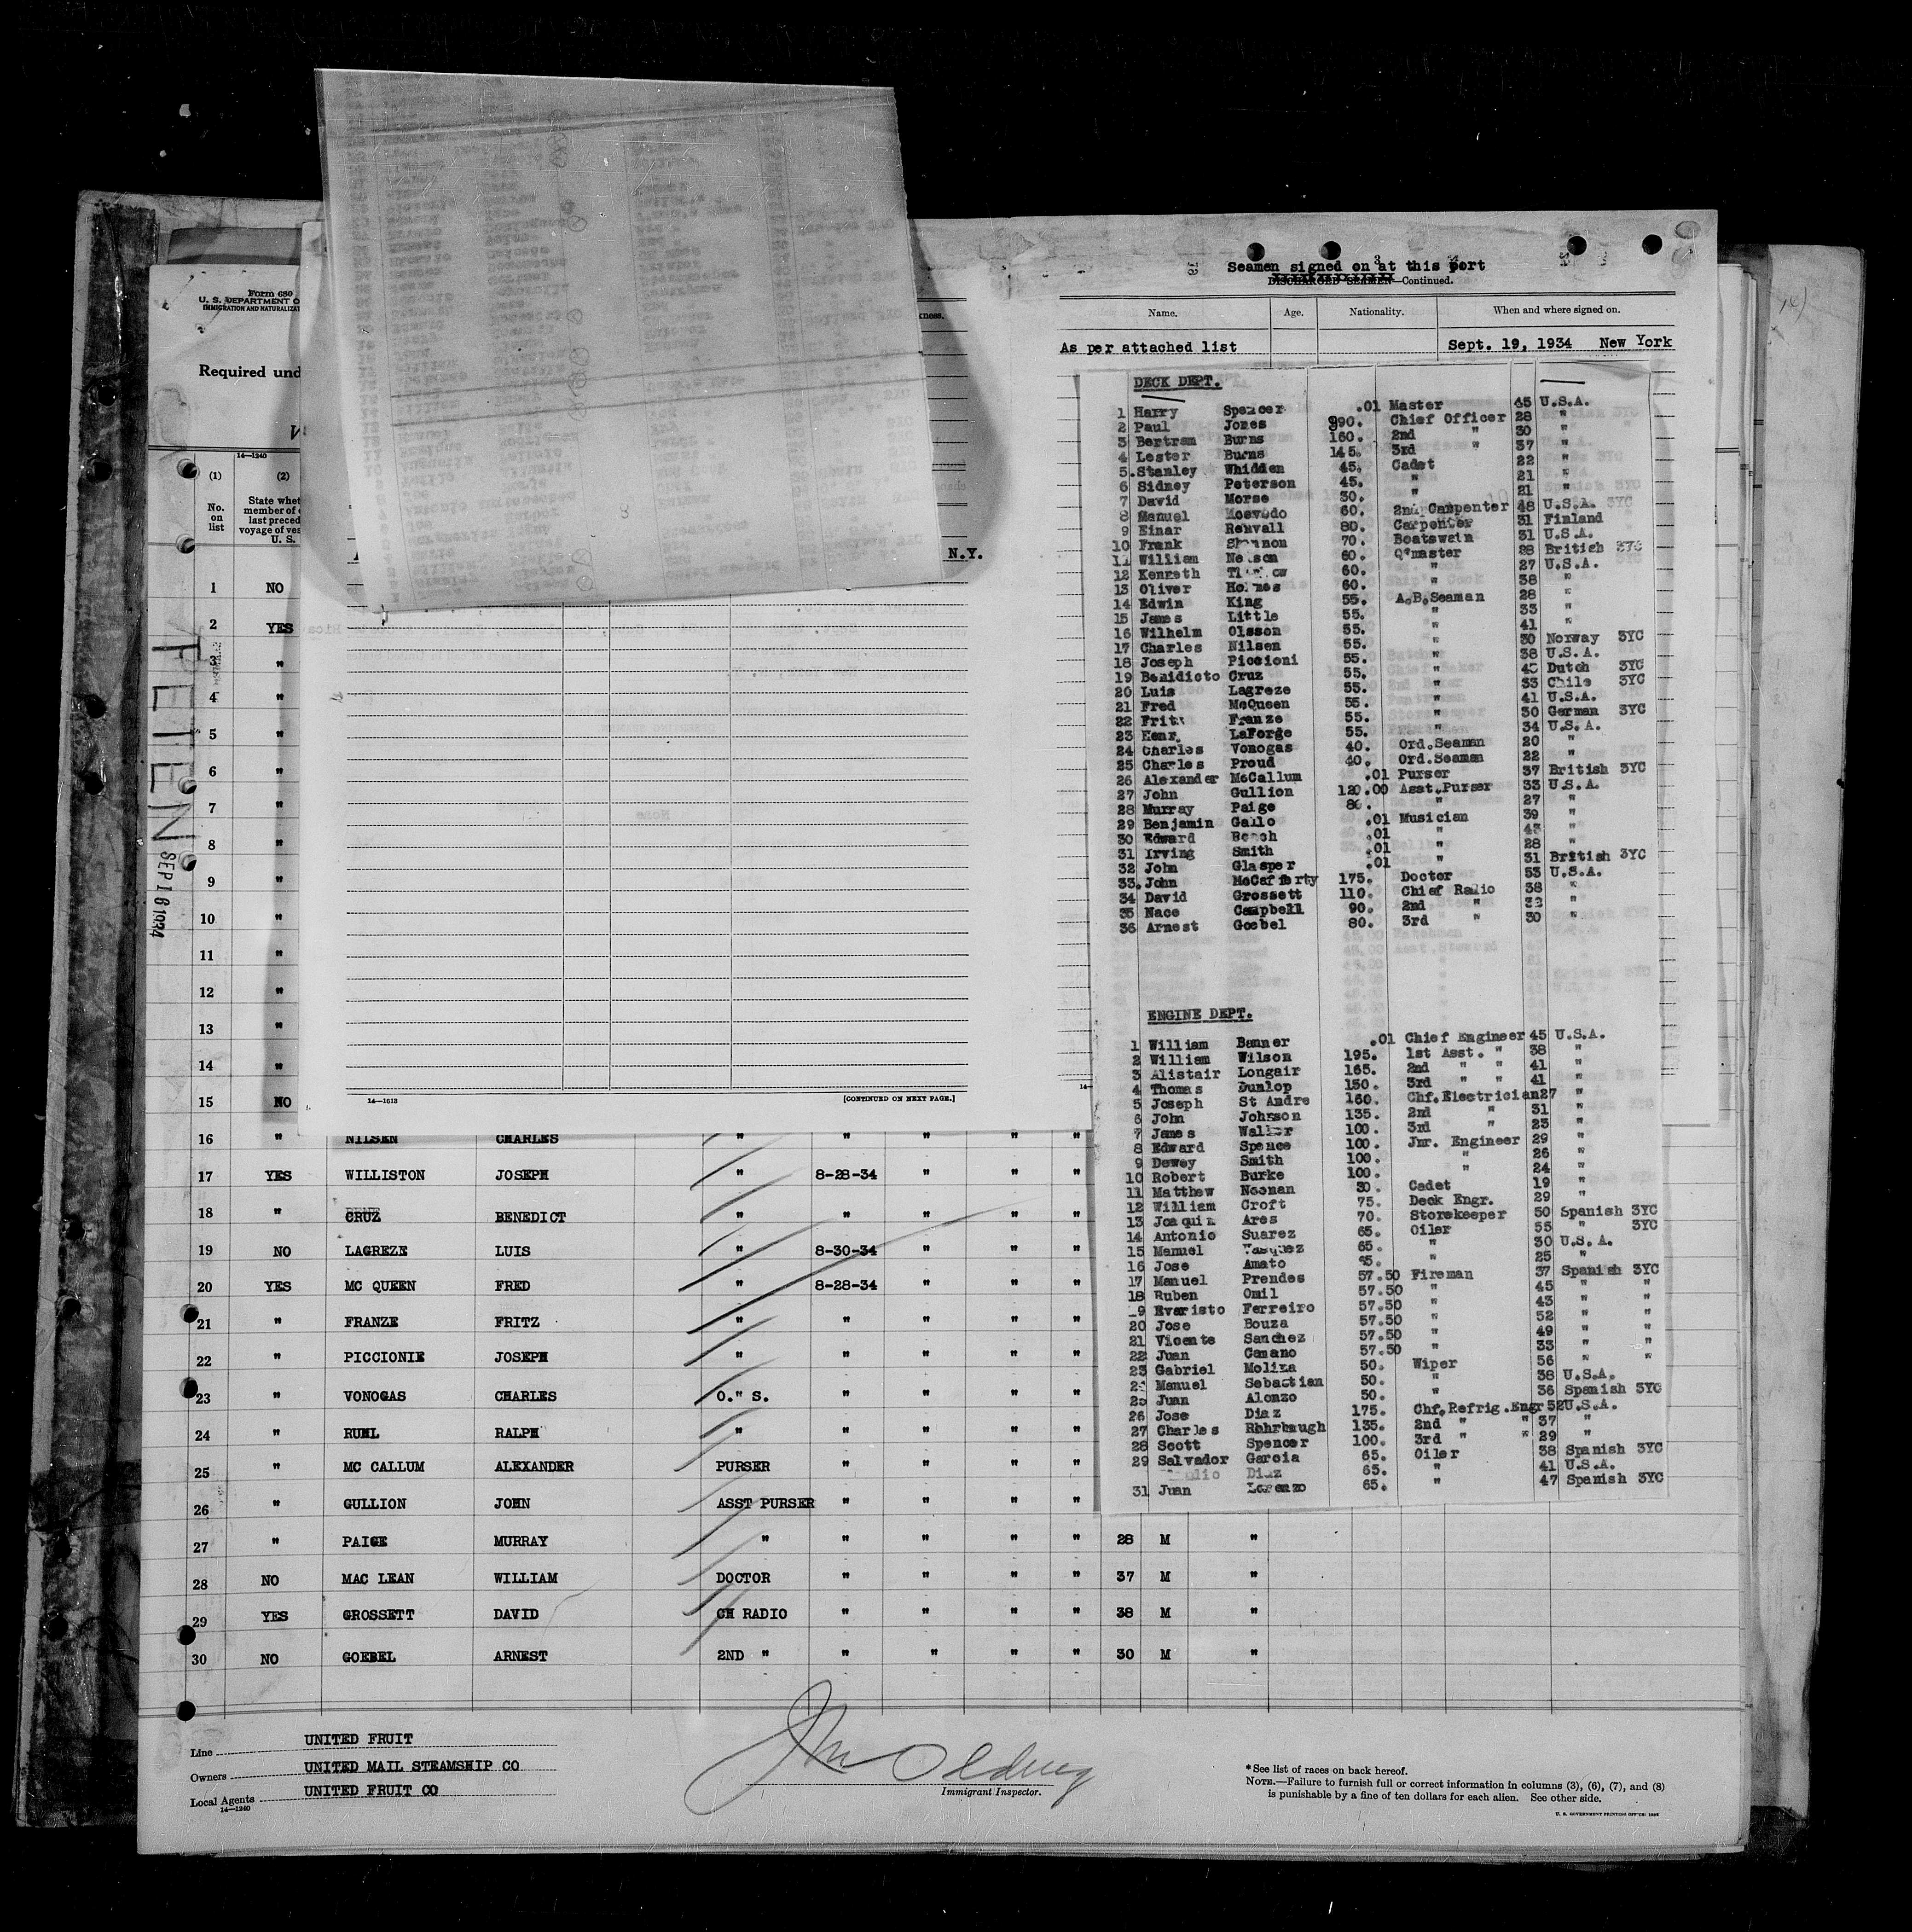 Seamen signed on at this port
DISCHARGED SEAMEN—Continued.
Name. Age. Nationality. When and where signed on.
As per attached list Sept. 19, 1934 New York
DECK DEPT.
1 Harry Spencer .01 Master 45 U.S.A.
2 Paul Jones 990. Chief Officer 28 "
3 Bertram Burns 160. 2nd " 30 "
4 Lester Burns 145. 3rd " 37 "
5. Stanley Whidden 45. Cadet 22 "
6 Sidney Peterson 45. " 21 "
7 David Morse 30. " 21 "
8 Manuel 60. 2nd Carpenter 48 U.S.A. 3YC
9 Einar Renvall 80. Carpenter 31 Finland
10 Frank Shannon 70. Boatswain 31 U.S.A.
11 William Nelson 60. Q'master 28 British 3YC
12 Kenneth 60. " 27 U.S.A.
13 Oliver Holmes 60. " 38 "
14 Edwin King 55. A.B.Seaman 28 "
15 James Little 55. " 33 "
16 Wilhelm Olsson 55. " 41 "
17 Charles Nilsen 55. " 30 Norway 3YC
18 Joseph Piccioni 55. " 38 U.S.A.
19 Benidicto Cruz 55. " 45 Dutch 3YC
20 Luis Lagreze 55. " 33 Chile 3YC
21 Fred McQueen 55. " 41 U.S.A.
22 Fritz Franze 55. " 30 German 3YC
23 LaForge 55. " 34 U.S.A.
24 Charles Vonogas 40. Ord.Seaman 20 "
25 Charles Proud 40. Ord.Seaman 22 "
26 Alexander McCallum .01 Purser 37 British 3YC
27 John Gullion 120.00 Asst.Purser 33 U.S.A.
28 Murray Paige 80. " 27 "
29 Benjamin Gallo .01 Musician 39 "
30 Edward .01 " "
31 Irving Smith .01 " 28 "
32 John Glasper .01 " 31 British 3YC
33. John McCafferty 175. Doctor 53 U.S.A.
34 David Grossett 110. Chief Radio 38 "
35 Nace Campbell 90. 2nd " "
36 Arnest Goebel 80. 3rd " 30 "
ENGINE DEPT.
1 William Banner .01 Chief Engineer 45 U.S.A.
2 William Wilson 195. 1st Asst. " 38 "
3 Alistair Longair 165. 2nd " " 41 "
4 Thomas Dunlop 150. 3rd " " 41 "
5 Joseph St Andre 160. Chf.Electrician 27 "
6 John Johnson 135. 2nd " 31 "
7 James Walker 100. 3rd " 23 "
8 Edward Spence 100. Jnr. Engineer 29 "
9 Dewey Smith 100. " 26 "
10 Robert Burke 100. " 24 "
11 Matthew Noonan 30. Cadet 19 "
12 William Croft 75. Deck Engr. 29 "
13 Joaquin Ares 70. Storekeeper 50 Spanish 3YC
14 Antonio Suarez 65. Oiler 55 " 3YC
15 Manuel Vasquez 65. " 30 U.S.A.
16 Jose Amato 65. " 25 "
17 Manuel Prendes 57.50 Fireman 37 Spanish 3YC
18 Ruben Omil 57.50 " 45 " "
19 Evaristo Ferreiro 57.50 " 43 " "
20 Jose Bouza 57.50 " 52 " "
21 Vicente Sanchez 57.50 " 49 " "
22 Juan Camano 57.50 " 33 " "
23 Gabriel Molina 50. Wiper 56 " "
Manuel Sebastian 50. " 38 U.S.A.
25 Juan Alonzo 50. " 36 Spanish 3YC
26 Jose Diaz 175. Chf.Refrig.Engr 52 U.S.A.
27 Charles Rohrbaugh 135. 2nd " " 37 "
28 Scott Spencer 100. 3rd " " 29 "
29 Salvador Garcia 65. Oiler 38 Spanish 3YC
Diaz 65. " 41 U.S.A.
31 Juan Lorenzo 65. " 47 Spanish 3YC
N.Y.
14—1613 [CONTINUED ON NEXT PAGE.]
Form 680
U. S. DEPARTMENT O
IMMIGRATION AND NATURALIZAT
Required und
14—1240
(1) (2)
No. on list
State whet
member of
last preced
voyage of ves
U. S.
PETEN
SEP 16 1934
1 NO
2 YES
3 "
4 "
5 "
6 "
7 "
8 "
9 "
10 "
11 "
12 "
13 "
14 "
15 NO
16 " NILSEN CHARLES " " " " "
17 YES WILLISTON JOSEPH " 8-28-34 " " "
18 " CRUZ BENEDICT " " " " "
19 NO LAGREZE LUIS " 8-30-34 " " "
20 YES MC QUEEN FRED " 8-28-34 " " "
21 " FRANZE FRITZ " " " " "
22 " PICCIONIE JOSEPH " " " " "
23 " VONOGAS CHARLES O." S. " " " "
24 " RUHL RALPH " " " " "
25 " MC CALLUM ALEXANDER PURSER " " " "
26 " GULLION JOHN ASST PURSER " " " "
27 " PAIGE MURRAY " " " " " 28 M "
28 NO MAC LEAN WILLIAM DOCTOR " " " " 37 M "
29 YES GROSSETT DAVID CH RADIO " " " " 38 M "
30 NO GOEBEL ARNEST 2ND " " " " " 30 M "
Line UNITED FRUIT
Owners UNITED MAIL STEAMSHIP CO
Local Agents UNITED FRUIT CO
14—1240
Immigrant Inspector.
* See list of races on back hereof.
NOTE.—Failure to furnish full or correct information in columns (3), (6), (7), and (8)
is punishable by a fine of ten dollars for each alien. See other side.
U. S. GOVERNMENT PRINTING OFFICE: 1934